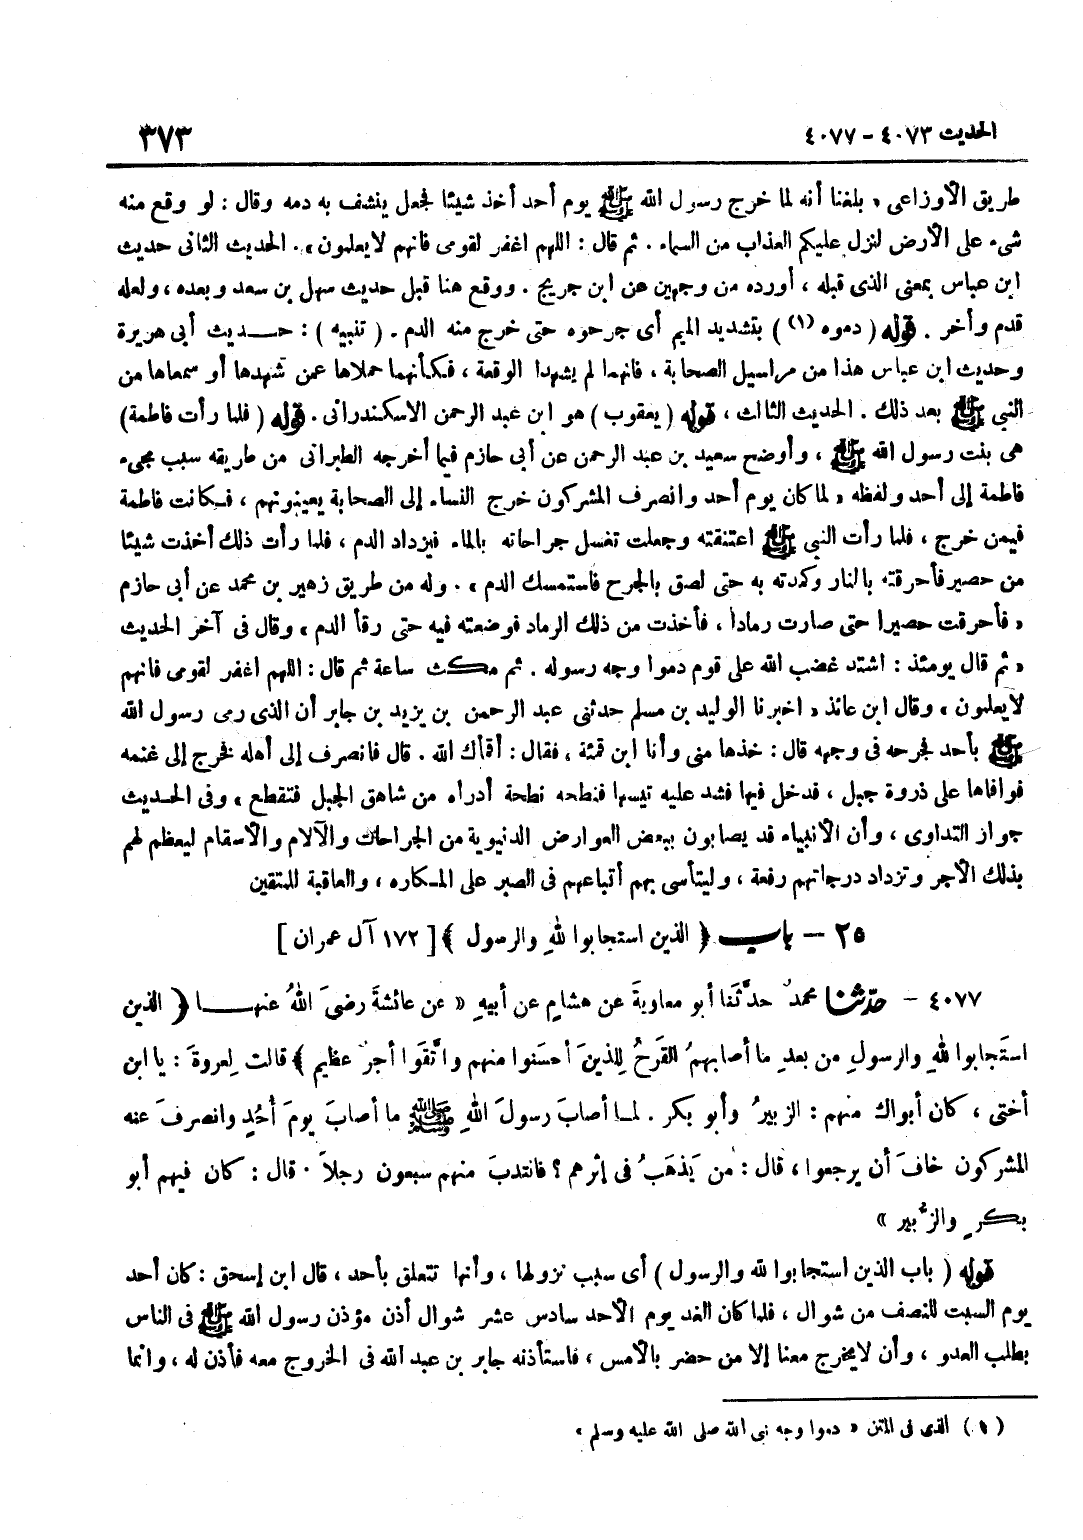 الحديث ٤٠٧٣ - ٤٠٧٧
٣٧٣
طريق الأوزاعى « بلغنا أنه لما خرج رسول الله ﷺ يوم أحد أخذ شيئا فجعل ينشف به دمه وقال : لو وقع منه
شىء على الأرض لنزل عليكم العذاب من السماء . ثم قال : اللهم اغفر لقومى فانهم لايعلمون » . الحديث الثانى حديث
ابن عباس بمعنى الذى قبله ، أورده من وجهين عن ابن جريج . ووقع هنا قبل حديث سهل بن سعد وبعده ، ولعله
قدم وأخر . قوله ( دموه (١) ) بتشديد الميم أى جرحوه حتى خرج منه الدم . ( تنبيه ) : حـــديث أبى هريرة
وحديث ابن عباس هذا من مراسيل الصحابة ، فانهما لم يشهدا الوقعة ، فكأنهما حملاها عمن شهدها أو سمعاها من
النبى ﷺ بعد ذلك . الحديث الثالث ، قوله ( يعقوب ) هو ابن عبد الرحمن الاسكندرانى . قوله ( فلما رأت فاطمة )
هى بنت رسول الله ﷺ ، وأوضح سعيد بن عبد الرحمن عن أبى حازم فيما أخرجه الطبرانى من طريقه سبب مجىء
فاطمة إلى أحد ولفظه « لما كان يوم أحد وانصرف المشركون خرج النساء إلى الصحابة يعينونهم ، فكانت فاطمة
فيمن خرج ، فلما رأت النبى ﷺ اعتنقته وجعلت تغسل جراحاته بالماء فيزداد الدم ، فلما رأت ذلك أخذت شيئا
من حصير فأحرقته بالنار وكمدته به حتى لصق بالجرح فاستمسك الدم » . وله من طريق زهير بن محمد عن أبى حازم
« فأحرقت حصيرا حتى صارت رمادا ، فأخذت من ذلك الرماد فوضعته فيه حتى رقأ الدم » وقال فى آخر الحديث
« ثم قال يومئذ : اشتد غضب الله على قوم دموا وجه رسوله . ثم مكث ساعة ثم قال : اللهم اغفر لقومى فانهم
لايعلمون » وقال ابن عائذ « اخبرنا الوليد بن مسلم حدثنى عبد الرحمن بن يزيد بن جابر أن الذى رمى رسول الله
ﷺ بأحد فجرحه فى وجهه قال : خذها منى وأنا ابن قمئة ، فقال : أقأك الله . قال فانصرف إلى أهله فخرج إلى غنمه
فوافاها على ذروة جبل ، فدخل فيها فشد عليه تيسها فنطحه نطحة أدراه من شاهق الجبل فتقطع » وفى الحديث
جواز التداوى ، وأن الأنبياء قد يصابون ببعض العوارض الدنيوية من الجراحات والآلام والأسقام ليعظم لهم
بذلك الأجر وتزداد درجاتهم رفعة ، وليتأسى بهم أتباعهم فى الصبر على المكاره ، والعاقبة للمتقين
٢٥ - باب ﴿ الذين استجابوا للهِ والرسول ﴾ [ ١٧٢ آل عمران ]
٤٠٧٧ - حدّثنا محمدٌ حدَّثَنا أبو معاويةَ عن هشامٍ عن أبيهِ « عن عائشةَ رضىَ اللهُ عنهـــا ﴿ الذين
استَجابوا للهِ والرسولِ من بعدِ ما أصابهمُ القَرحُ لِلذينَ أحسَنوا منهم واتَّقَوا أجرٌ عظيم ﴾ قالت لِعروةَ : يا ابن
أختى ، كان أبواك منهم : الزبيرُ وأبو بكر . لمـا أصابَ رسولَ اللهِ ﷺ ما أصابَ يومَ أُحُدٍ وانصرفَ عنه
المشركون خافَ أن يرجعوا ، قال : من يَذهَبُ فى إثرهم ؟ فانتدبَ منهم سبعون رجلاً . قال : كان فيهم أبو
بكرٍ والزُّبير »
قوله ( باب الذين استجابوا لله والرسول ) أى سبب نزولها ، وأنها تتعلق بأحد ، قال ابن إسحق : كان أحد
يوم السبت للنصف من شوال ، فلما كان الغد يوم الأحد سادس عشر شوال أذن مؤذن رسول الله ﷺ فى الناس
بطلب العدو ، وأن لايخرج معنا إلا من حضر بالأمس ، فاستأذنه جابر بن عبد الله فى الخروج معه فأذن له ، وانما
(١) الذى فى المتن « دموا وجه نبى الله صلى الله عليه وسلم »